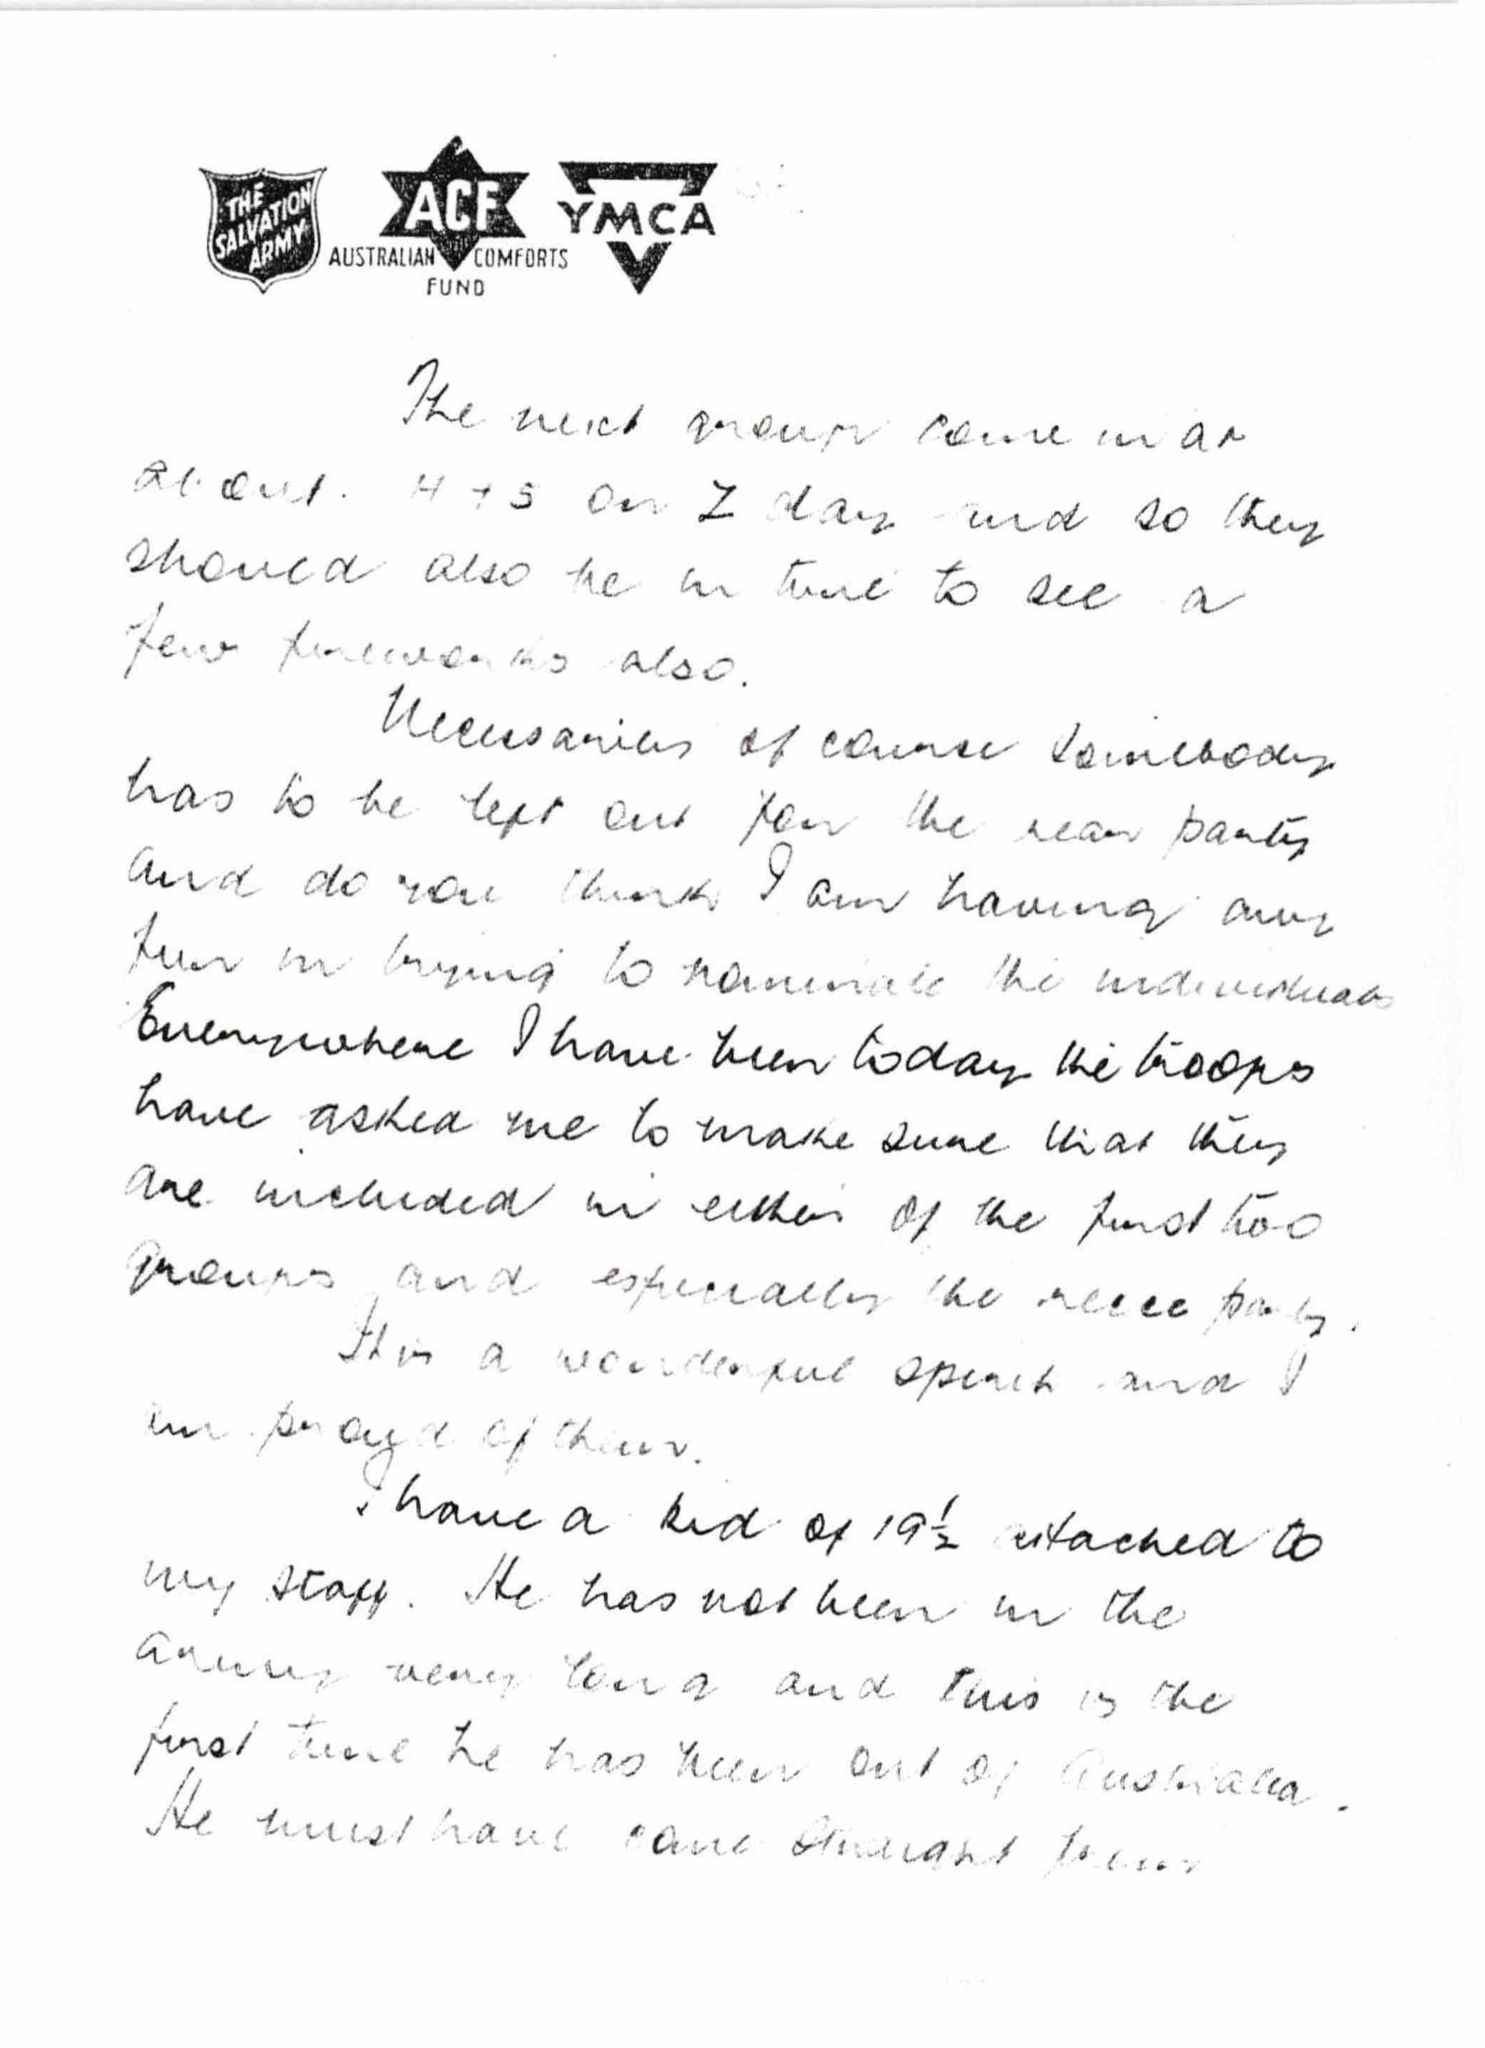 THE
SALVATION
ARMY
ACF
AUSTRALIAN COMFORTS
FUND
YMCA
The next group come in at
about 4 + 5 on Z day and so they
should also be in time to see a
few fireworks also.
Necessarily of course somebody
has to be left out for the rear party
and do you think I am having any
fun in trying to nominate the individuals
Everywhere I have been today the troops
have asked me to make sure that they
are included in either of the first two
groups and especially the recce party.
It is a wonderful spirit and I
am proud of them.
I have a kid of 19½ attached to
my staff. He has not been in the
army very long and this is the
first time he has been out of Australia.
He must have came straight from